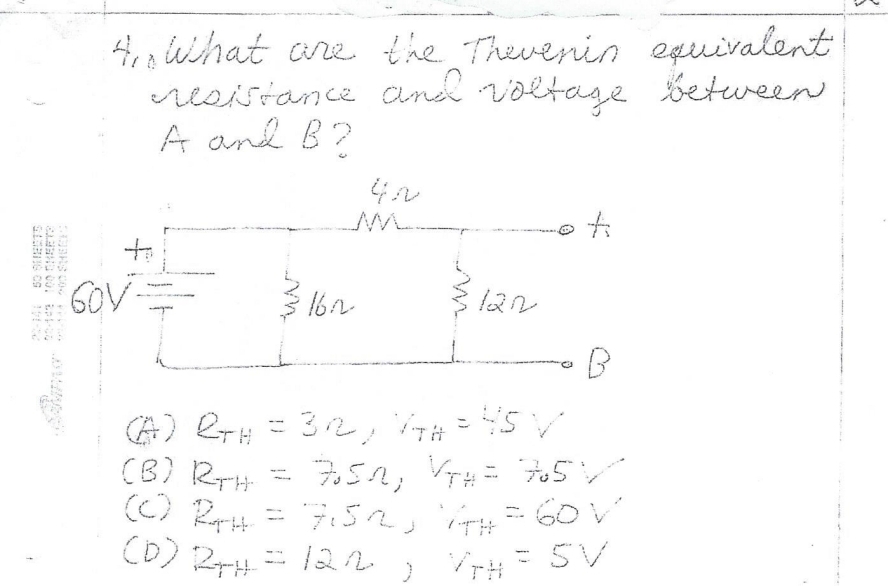 4. What are the Thevenin equivalent
resistance and voltage between
A and B?
4Ω
A
+
60V
16Ω
12Ω
B
(A) RTH = 3Ω, VTH = 45 V
(B) RTH = 7.5Ω, VTH = 7.5 V
(C) RTH = 7.5Ω, VTH = 60 V
(D) RTH = 12Ω, VTH = 5V